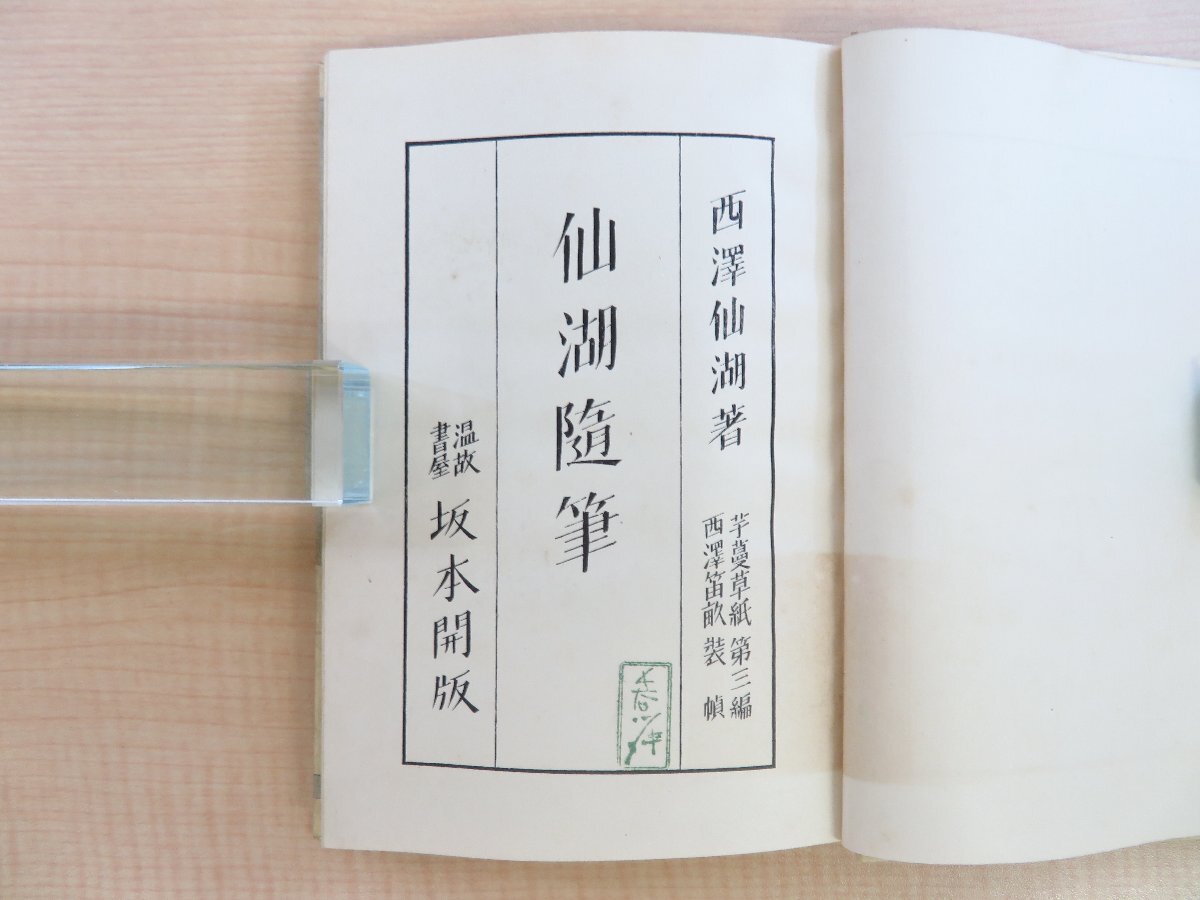 西澤仙湖著
芋蔓草紙第三編
西澤笛畝裝幀
仙湖隨筆
温故書屋
坂本開版